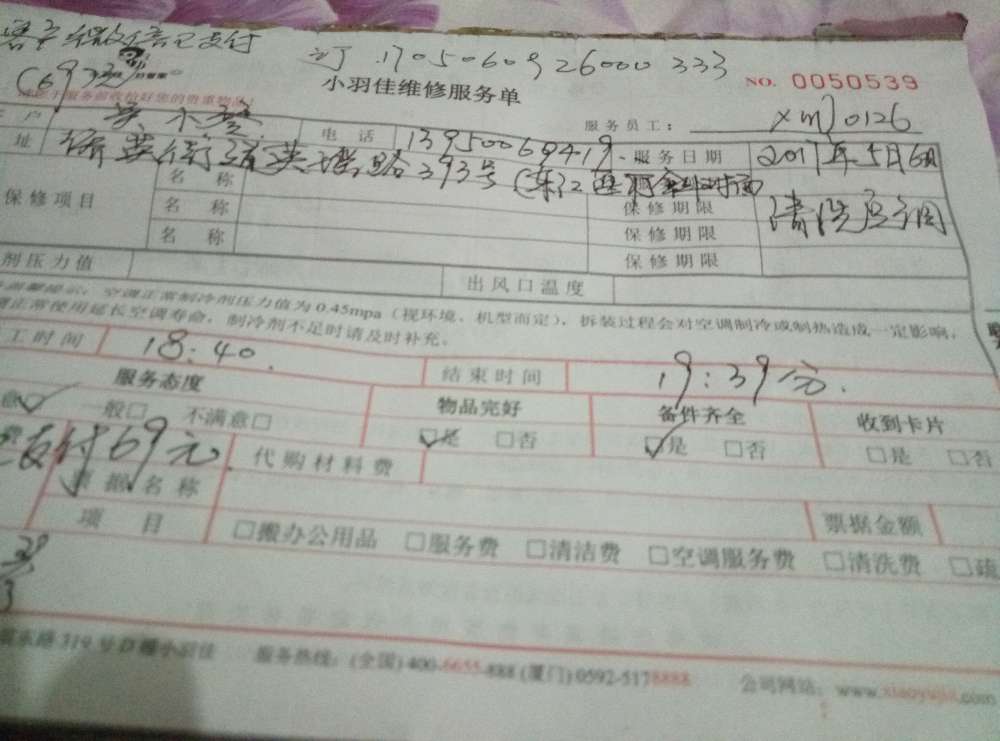 客户微信已支付
订 170506092600 0333
(6933
小羽佳维修服务单
NO. 0050539
服务员工: XMJ0126
户
电话 13950069419
服务日期 2017年5月6日
址 393号
保修项目
名称 保修期限 清洗空调
名称 保修期限
名称 保修期限
剂压力值 出风口温度
空调正常制冷剂压力值为0.45mpa(视环境、机型而定),拆装过程会对空调制冷或制热造成一定影响,
正常使用延长空调寿命,制冷剂不足时请及时补充。
工时间 18:40. 结束时间 19:39分.
服务态度 物品完好 备件齐全 收到卡片
意☑ 一般□ 不满意□ ☑是 □否 ☑是 □否 □是 □否
支付69元. 代购材料费
票据名称 票据金额
项目 □搬办公用品 □服务费 □清洁费 □空调服务费 □清洗费
服务热线:(全国)400-6655-888 (厦门)0592-5178888 公司网站:www.xiaoyujia.com